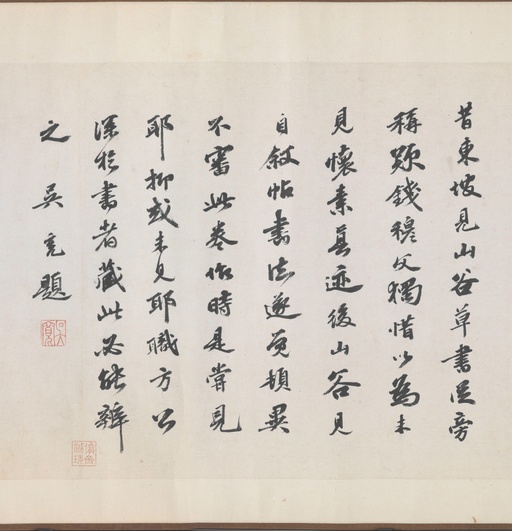 昔東坡見山谷草書旁
稱歎錢穆父獨惜以為未
見懷素真迹後山谷見
自叙帖書法遂頓異
不審此卷作時是嘗見
耶抑或未見耶職方公
深於書者藏此必能辨
之 吳寬題